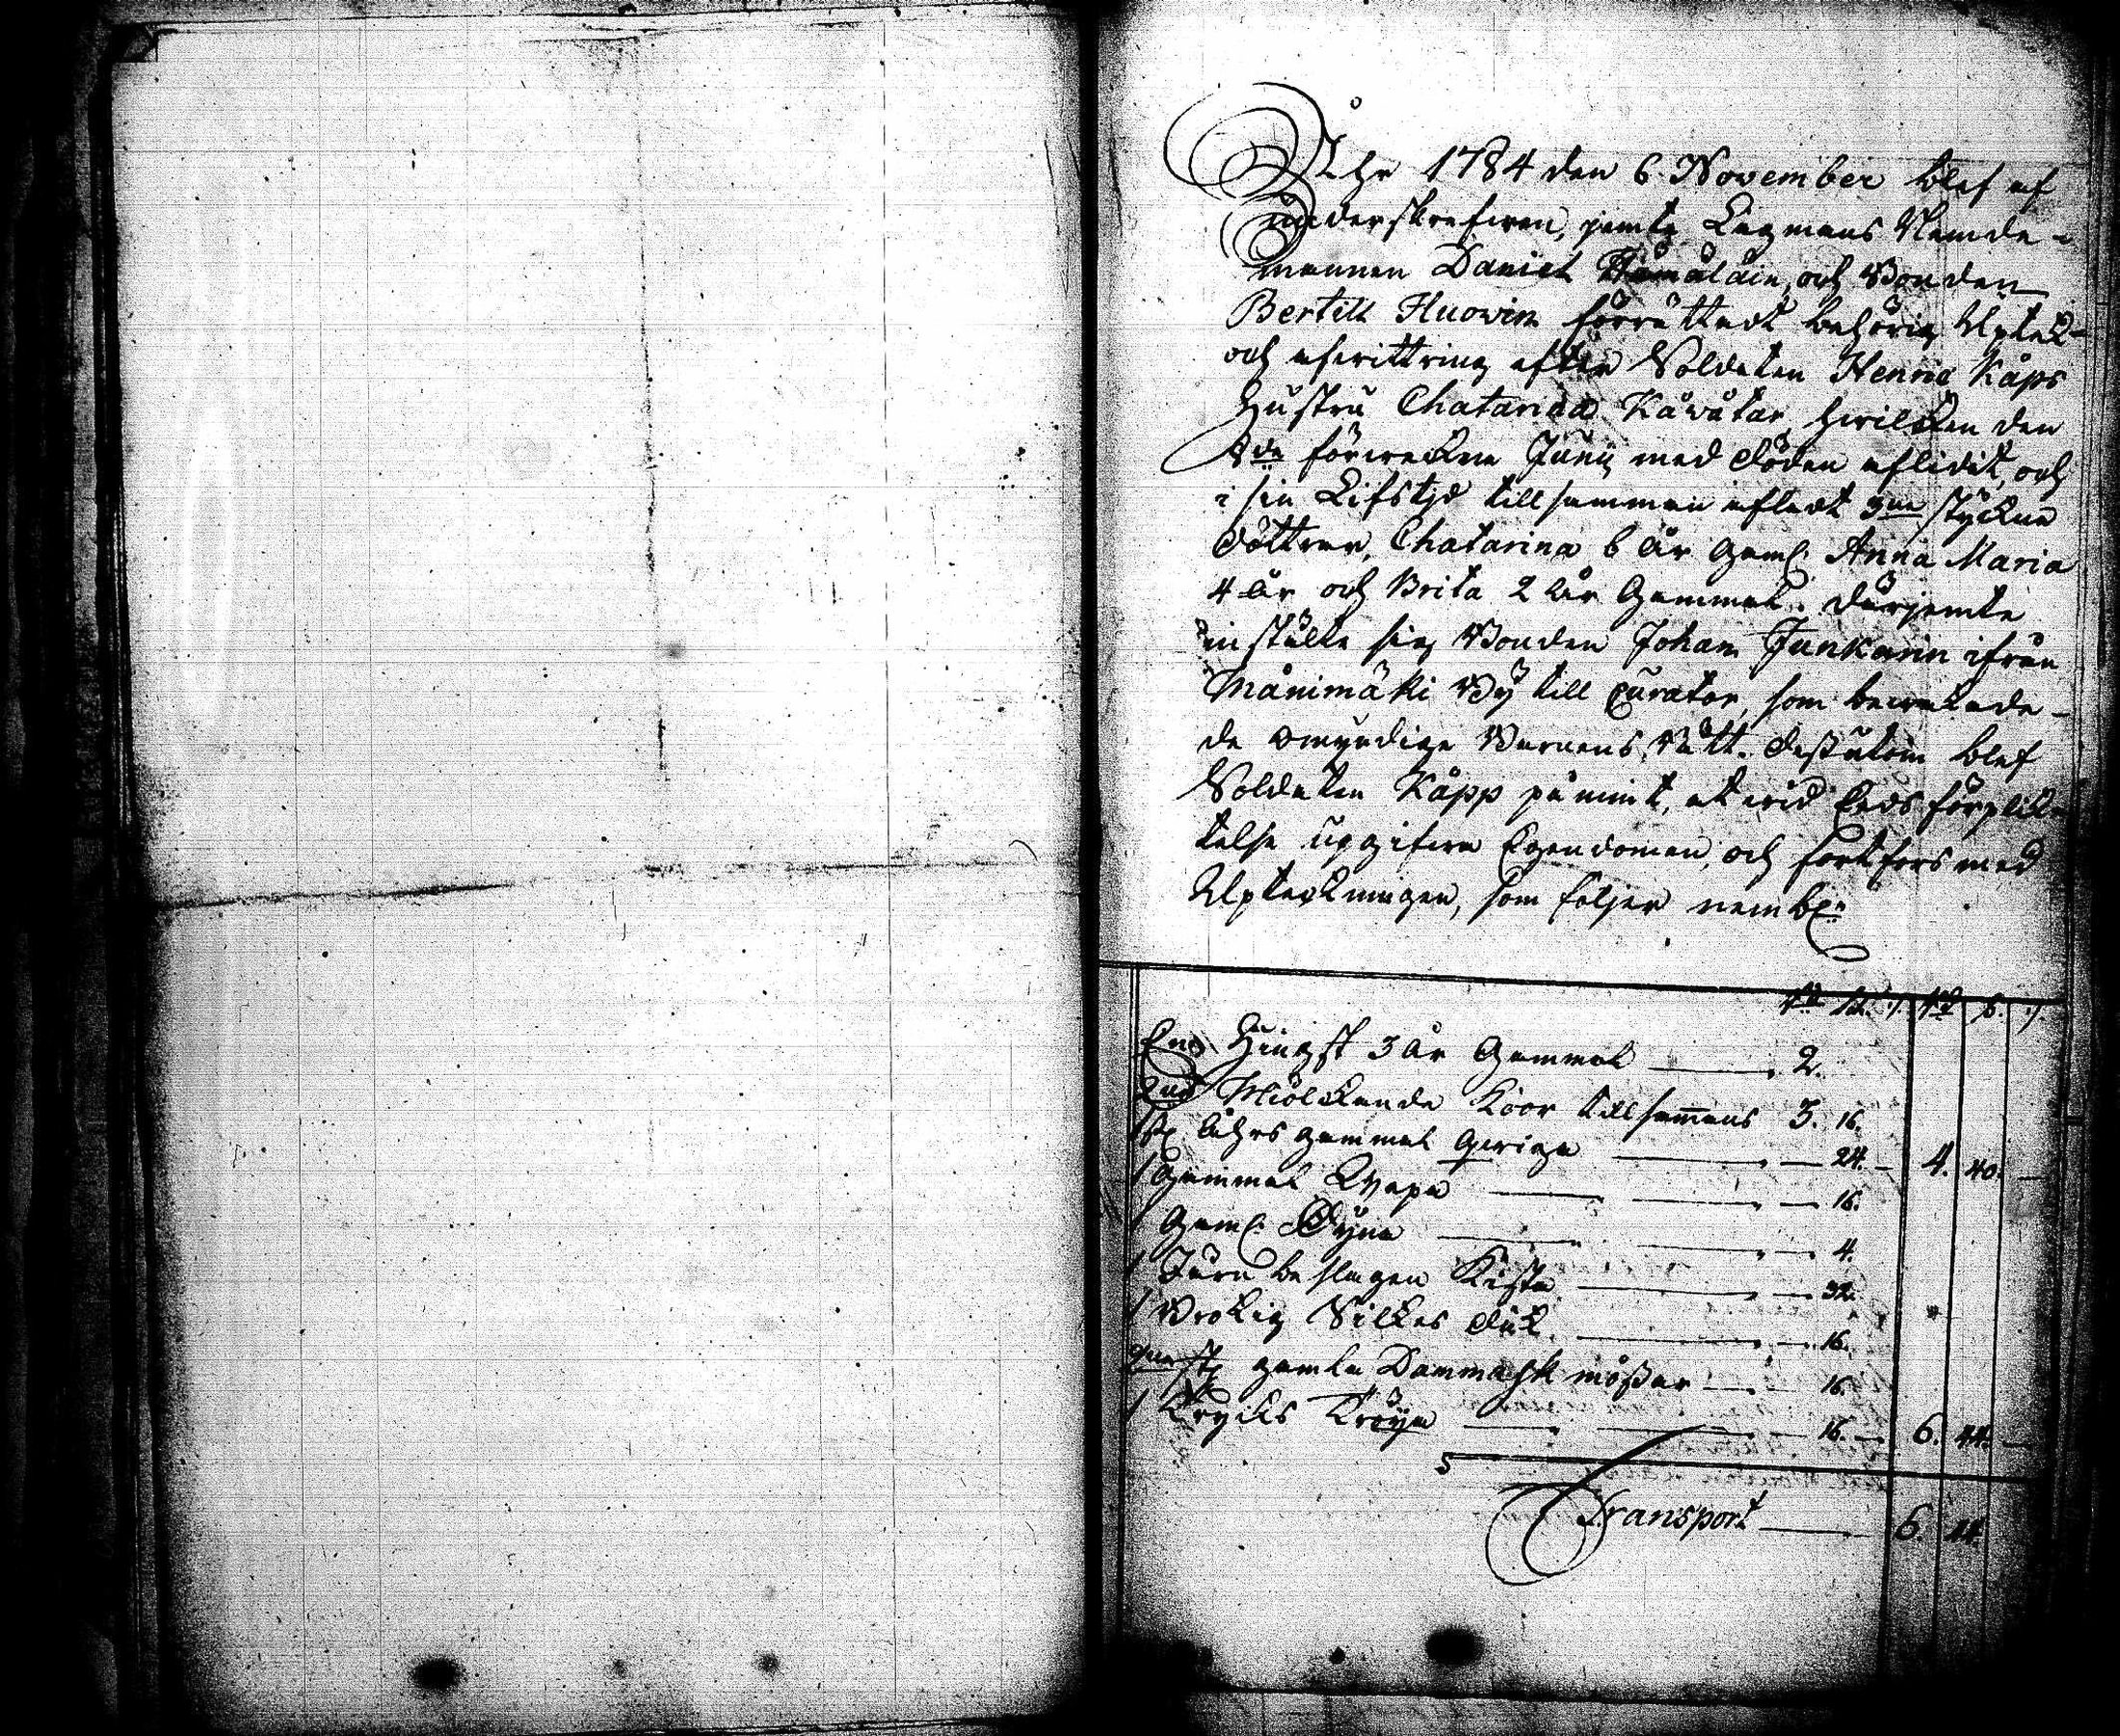 Åhr 1784 den 6 November blef af
underskrefwen, jemte Lagmans Nämde-
mannen Daniel Hämäläin, och Bonden
Bertill Huowin förrättadt behörig Uptek-
och afwittring efter Soldaten Henric Kåps
Hustru Chatarina Kåwåtar, hwilcken den
förweckne Junii med döden aflidit, och
i sin Lifstijd tillsamman afladt 3ne stycken
döttrar, Chatarina 6 år gaml. Anna Maria
4 år och Brita 2 år Gammal. Därjemte
instälte sig Bonden Johan Junkarin ifrån
Månimäki By till Curator, som bewakade-
de omyndige Barnens rätt. dessutom blef
Soldaten Kåpp påmint, at wid Eds förplik-
telse upgifwa Egendomen, och fortfors med
Upteckningen, som följer nembl:
En Hingst 3 år Gammal 2.
2ne Miölckande Koor tillsammans 3. 16.
1 st. åhrs gammal qwiga 24. 4. 40.
1 Gammal 16.
1 Gaml. Dyna 4.
1 Järn beslagen Kista 32.
1 Brokig Silkes duk 16.
2ne st. gamla Dammask mössor 16.
1 Tryckt Tröya 16. 6. 44.
Transport 6. 44.